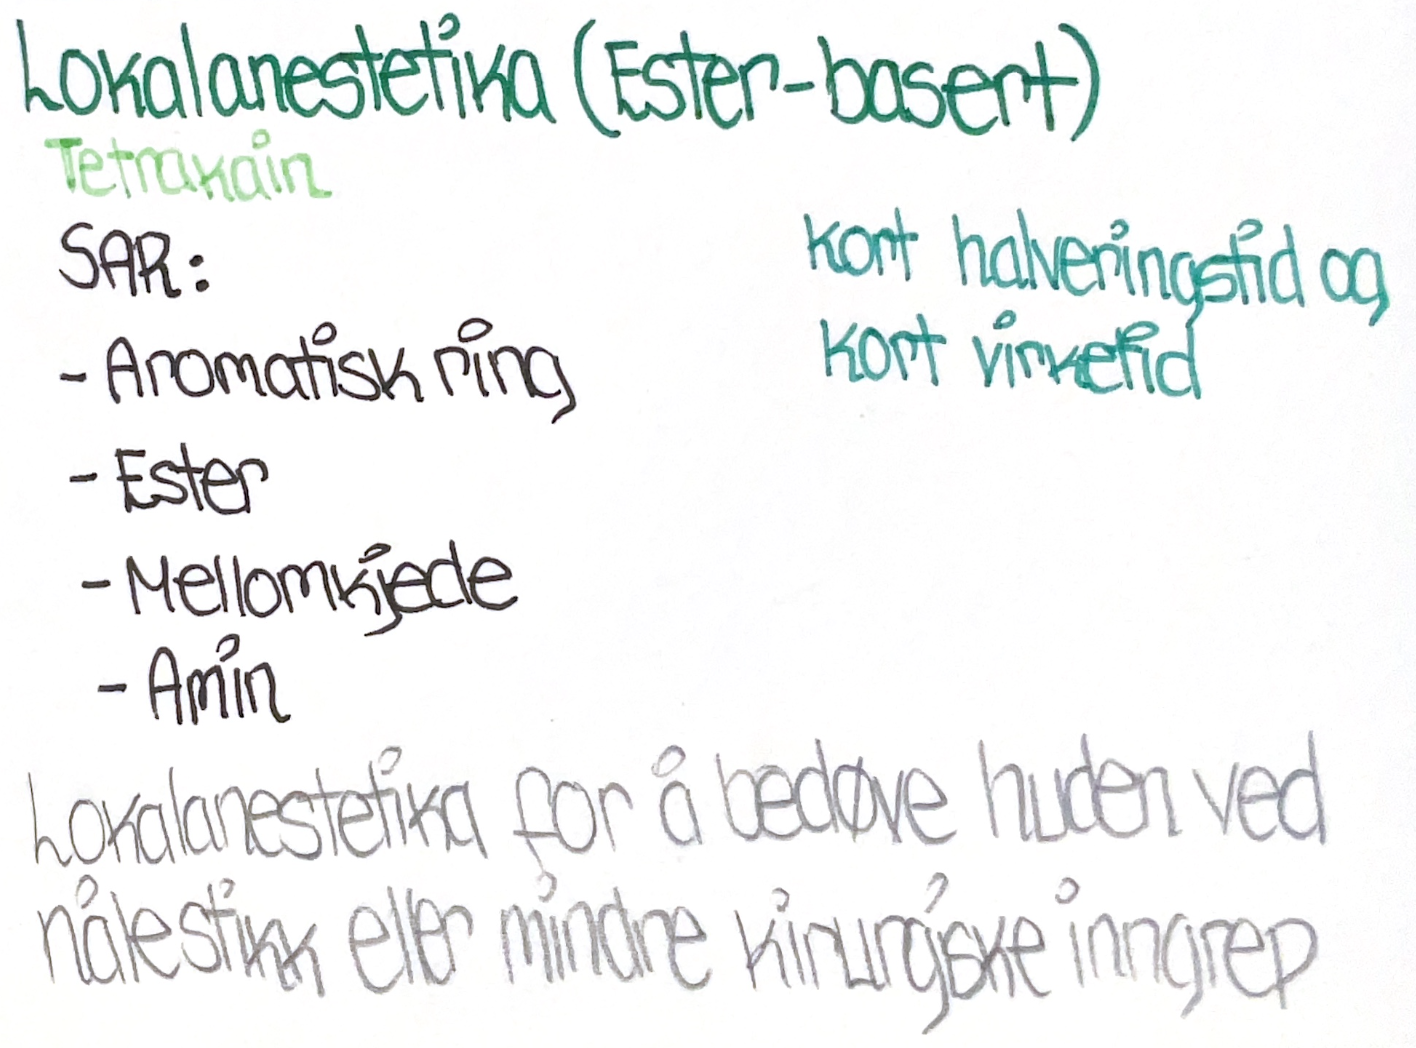 Lokalanestetika (Ester-basert)
Tetrakain
SAR:
kort halveringstid og
kort virketid
- Aromatisk ring
- Ester
- Mellomkjede
- Amin
Lokalanestetika for å bedøve huden ved
nålestikk eller mindre kirurgiske inngrep